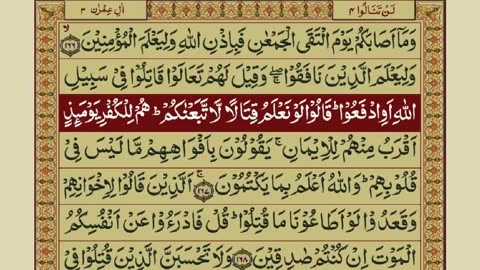 لَنْ تَنَالُوا ۴
اٰلِ عِمْرٰن ۳
وَمَاۤ اَصَابَكُمْ يَوْمَ الْتَقَى الْجَمْعٰنِ فَبِاِذْنِ اللّٰهِ وَلِيَعْلَمَ الْمُؤْمِنِيْنَ ۙ﴿۱۶۶﴾
وَلِيَعْلَمَ الَّذِيْنَ نَافَقُوْا ۖۚ وَقِيْلَ لَهُمْ تَعَالَوْا قَاتِلُوْا فِيْ سَبِيْلِ
اللّٰهِ اَوِ ادْفَعُوْا ؕ قَالُوْا لَوْ نَعْلَمُ قِتَالًا لَّا تَّبَعْنٰكُمْ ؕ هُمْ لِلْكُفْرِ يَوْمَئِذٍ
اَقْرَبُ مِنْهُمْ لِلْاِيْمَانِ ۚ يَقُوْلُوْنَ بِاَفْوَاهِهِمْ مَّا لَيْسَ فِيْ
قُلُوْبِهِمْ ؕ وَاللّٰهُ اَعْلَمُ بِمَا يَكْتُمُوْنَ ۚ﴿۱۶۷﴾ اَلَّذِيْنَ قَالُوْا لِاِخْوَانِهِمْ
وَقَعَدُوْا لَوْ اَطَاعُوْنَا مَا قُتِلُوْا ؕ قُلْ فَادْرَءُوْا عَنْ اَنْفُسِكُمُ
الْمَوْتَ اِنْ كُنْتُمْ صٰدِقِيْنَ ﴿۱۶۸﴾ وَلَا تَحْسَبَنَّ الَّذِيْنَ قُتِلُوْا فِيْ